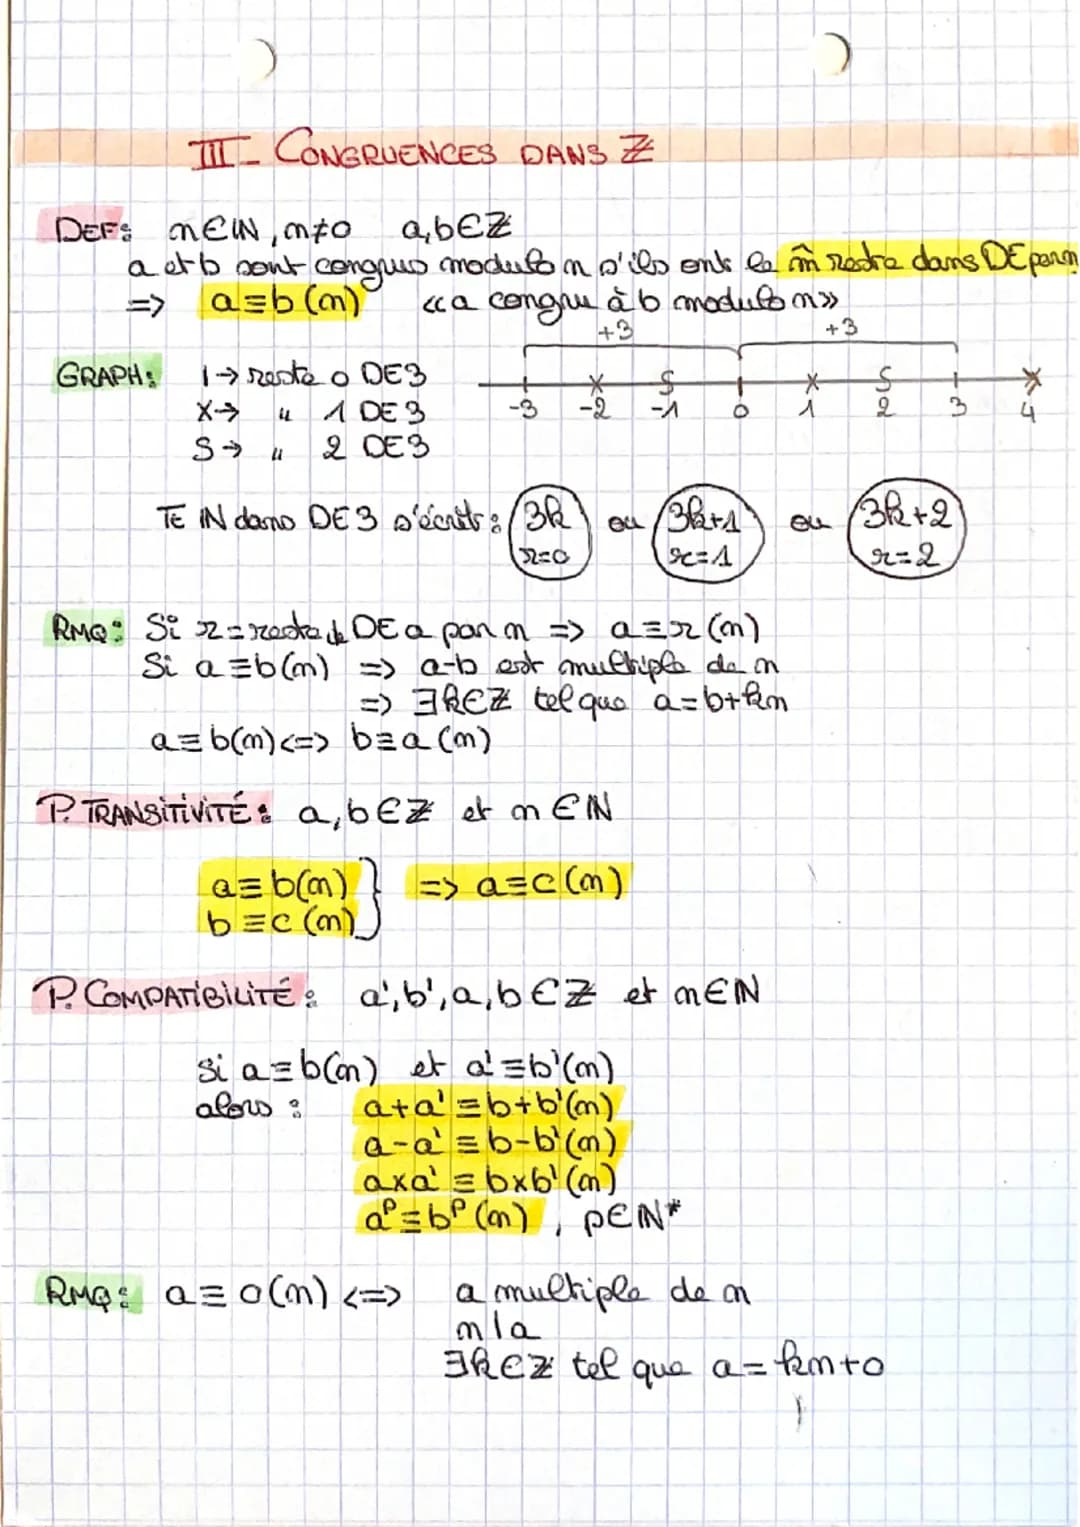 III - CONGRUENCES DANS ℤ
DEF: n∈ℕ, n≠0 a,b∈ℤ
a et b sont congrus modulo n s'ils ont le m̂ reste dans DE par n
=> a≡b(n) «a congru à b modulo n»
+3 +3
GRAPH: I→ reste 0 DE3
X→ " 1 DE3
S→ " 2 DE3
-3 -2 -1 0 1 2 3 4
TE IN dans DE3 s'écrit: 3k ou 3k+1 ou 3k+2
r=0 r=1 r=2
RMQ: Si r = reste de DE a par n => a≡r(n)
Si a≡b(n) => a-b est multiple de n
=> ∃k∈ℤ tel que a=b+kn
a≡b(n) <=> b≡a(n)
P. TRANSITIVITÉ: a,b∈ℤ et n∈ℕ
a≡b(n) } => a≡c(n)
b≡c(n)
P. COMPATIBILITÉ: a',b',a,b∈ℤ et n∈ℕ
si a≡b(n) et a'≡b'(n)
alors: a+a'≡b+b'(n)
a-a'≡b-b'(n)
axa'≡bxb'(n)
aᵖ≡bᵖ(n), p∈ℕ*
RMQ: a≡0(n) <=> a multiple de n
n|a
∃k∈ℤ tel que a=kn+0